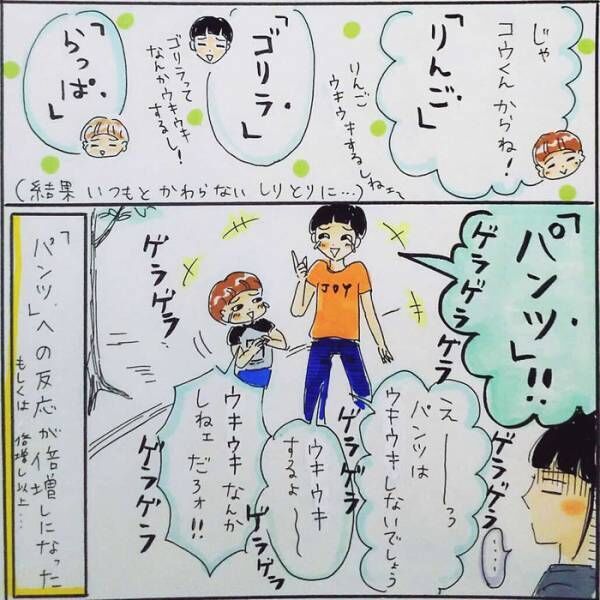 じゃ
コウくんからね!
「りんご」
りんご
ウキウキするしねェ〜
「ゴリラ」
ゴリラって
なんかウキウキ
するし!
「らっぱ」
(結果 いつもと かわらない しりとりに…)
「パンツ」!!
ゲラゲラ
ゲラゲラ
え――ろ
パンツは
ウキウキしないでしょう
ゲラゲラ
……
JOY
ゲラゲラ
ウキウキ
するよ〜
ゲラゲラ
ゲラゲラ
ウキウキなんか
しねェだろォ!!
ゲラゲラ
「パンツ」への反応が倍増しになった
もしくは 倍増し以上…